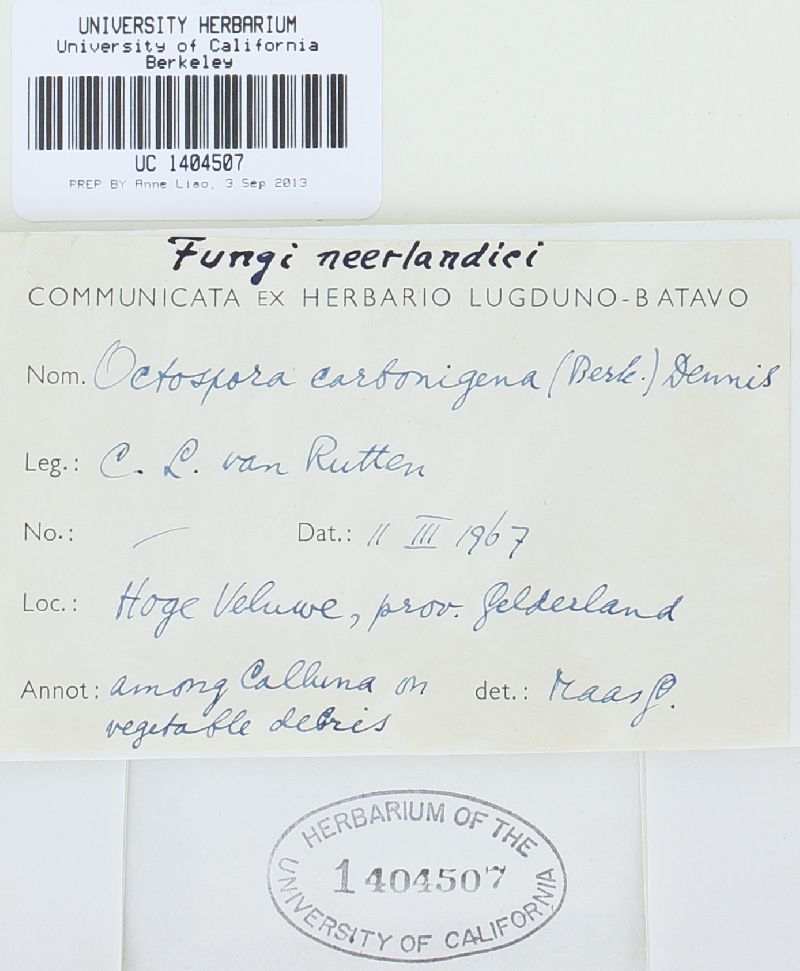 UNIVERSITY HERBARIUM
University of California
Berkeley
UC 1404507
PREP BY Anne Liao, 3 Sep 2013
Fungi neerlandici
COMMUNICATA EX HERBARIO LUGDUNO-BATAVO
Nom. Octospora carbonigena (Berk.) Dennis
Leg.: C. L. van Rutten
No.: — Dat.: 11 III 1967
Loc.: Hoge Veluwe, prov. Gelderland
Annot: among Calluna on det.: Maas G.
vegetable debris
HERBARIUM OF THE
1404507
UNIVERSITY OF CALIFORNIA